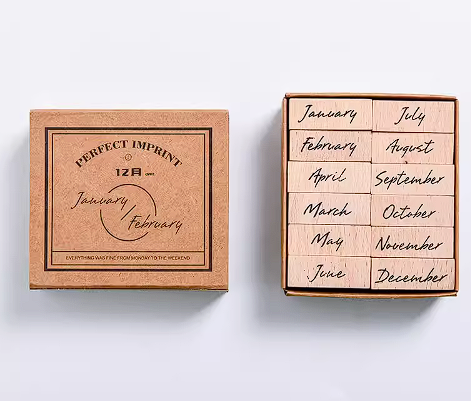 PERFECT IMPRINT
12月
January
February
EVERYTHING WAS FINE FROM MONDAY TO THE WEEKEND
January
July
February
August
April
September
March
October
May
November
June
December